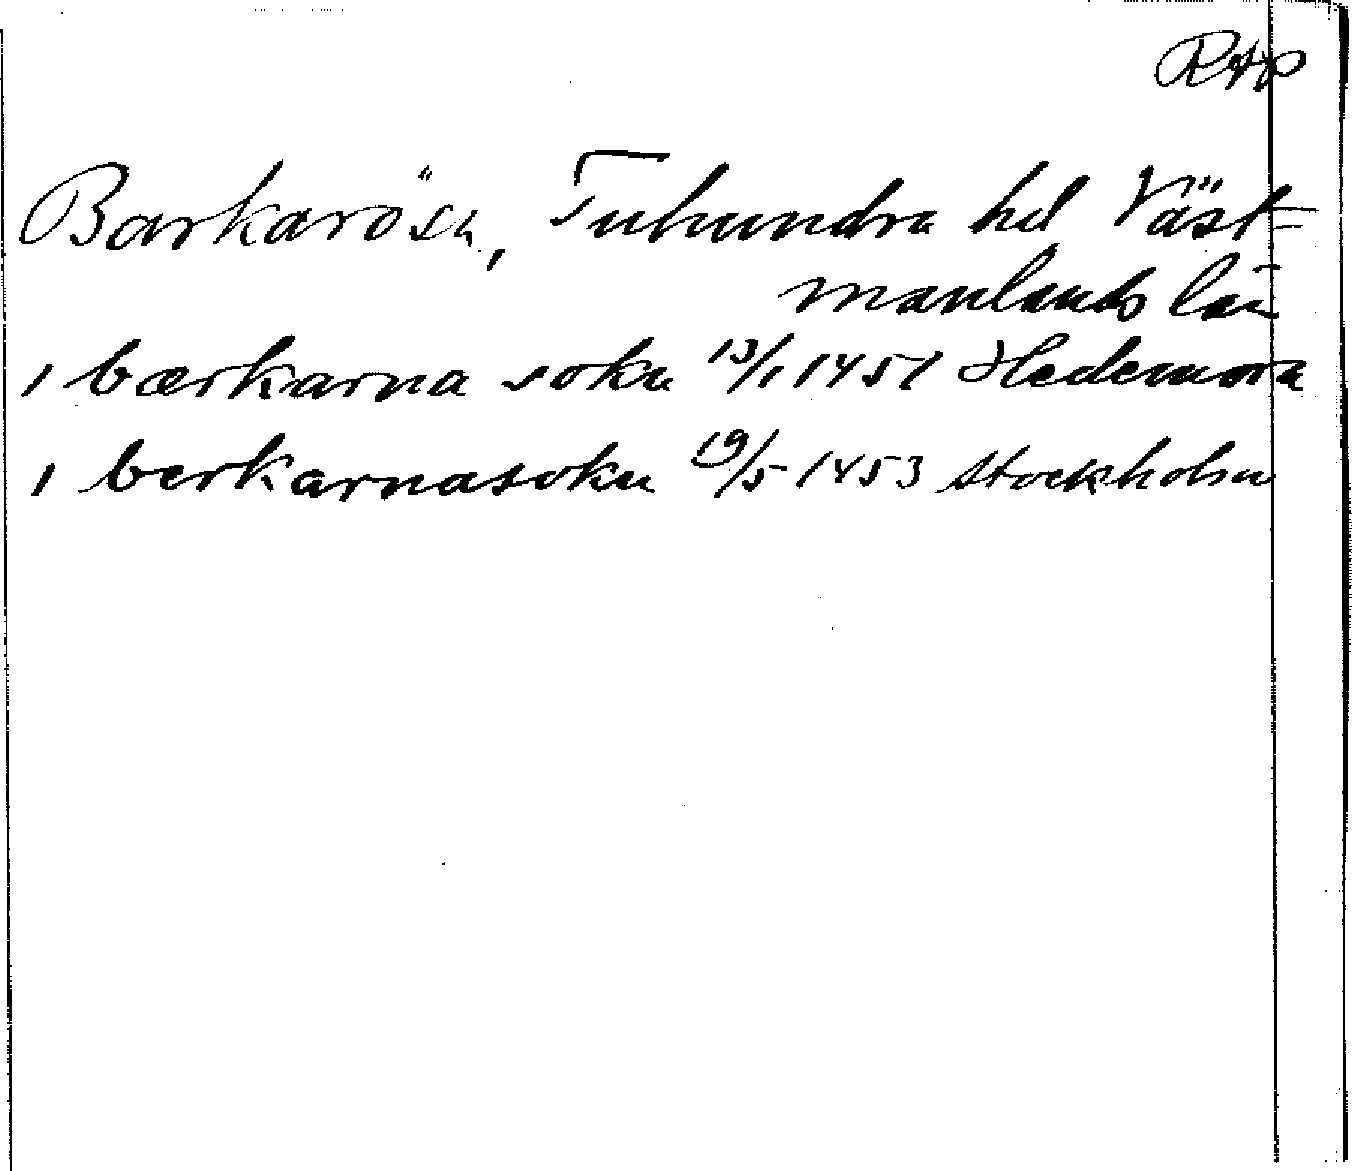 RAP
Barkarö sn, Tuhundra hd Väst-
manlands län
i bærkarna sokn 13/1 1451 Hedemora
i berkarnasokn 19/5 1453 Stockholm